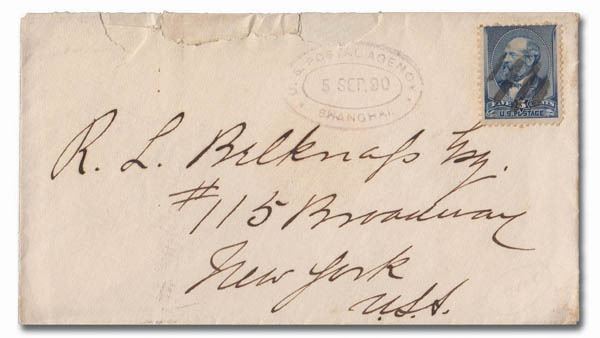 U.S. POSTAL AGENCY
5 SEP. 90
SHANGHAI
5
U.S. POSTAGE
R. L. Belknap Esq.
#115 Broadway
New York
U.S.